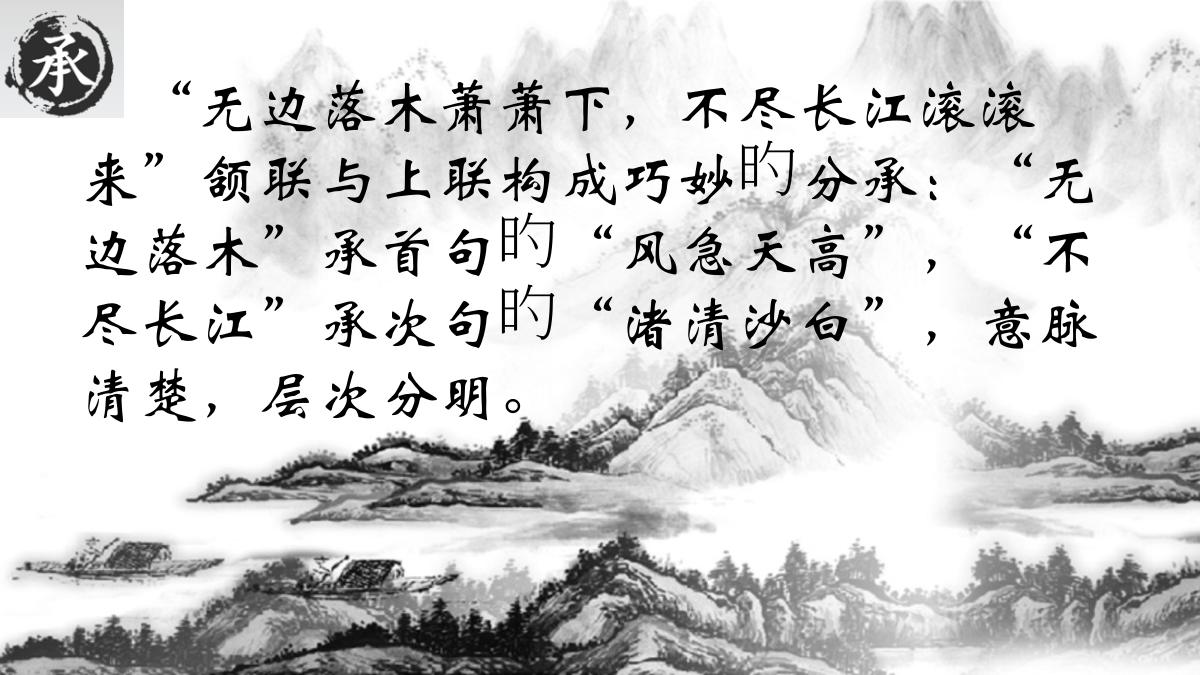 承
“无边落木萧萧下，不尽长江滚滚
来”颔联与上联构成巧妙旳分承：“无
边落木”承首句旳“风急天高”，“不
尽长江”承次句旳“渚清沙白”，意脉
清楚，层次分明。